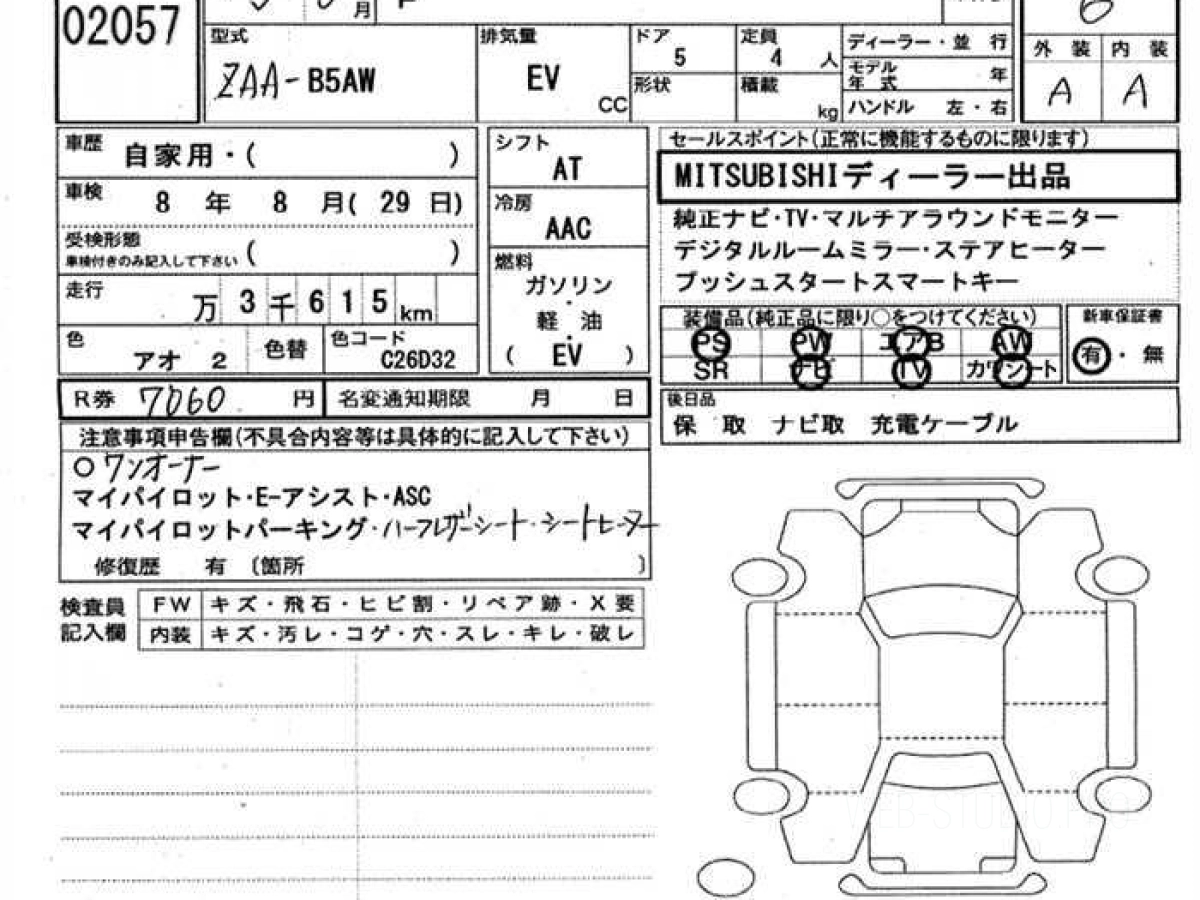 02057
月
型式
ZAA-B5AW
排気量
EV
CC
ドア
5
形状
定員
4 人
積載
kg
ディーラー・並 行
モデル年式 年
ハンドル 左・右
6
外 装 内 装
A A
車歴
自家用・( )
車検
8 年 8 月( 29 日)
受検形態
車検付きのみ記入して下さい ( )
走行
万 3 千 6 1 5 km
色
アオ 2
色替
色コード
C26D32
シフト
AT
冷房
AAC
燃料
ガソリン
・
軽 油
・
( EV )
セールスポイント(正常に機能するものに限ります)
MITSUBISHIディーラー出品
純正ナビ・TV・マルチアラウンドモニター
デジタルルームミラー・ステアヒーター
プッシュスタートスマートキー
装備品(純正品に限り○をつけてください)
PS PW エアB AW
SR ナビ TV カワシート
新車保証書
有・無
R券 7060 円
名変通知期限 月 日
後日品
保 取 ナビ取 充電ケーブル
注意事項申告欄(不具合内容等は具体的に記入して下さい)
○ワンオーナー
マイパイロット・E-アシスト・ASC
マイパイロットパーキング・ハーフレザーシート・シートヒーター
修復歴 有 〔箇所 〕
検査員記入欄
FW キズ・飛石・ヒビ割・リペア跡・X要
内装 キズ・汚レ・コゲ・穴・スレ・キレ・破レ